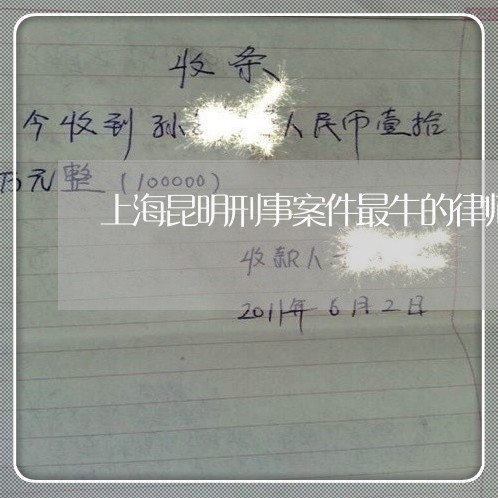 收条
今收到孙 人民币壹拾
万元整(100000)
上海昆明刑事案件最牛的律师
收款人
2011年6月2日